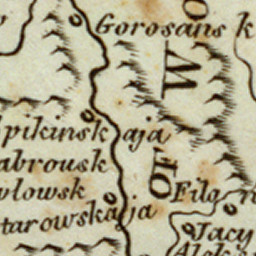 Gorosans k
pikinsk aja
abrousk
wlowsk
tarowskaja
Filo
Jacy